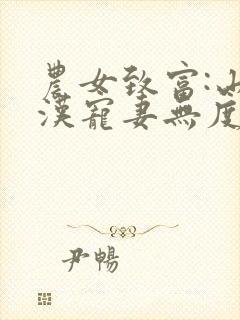 農女致富:山
漢寵妻無度
尹暢